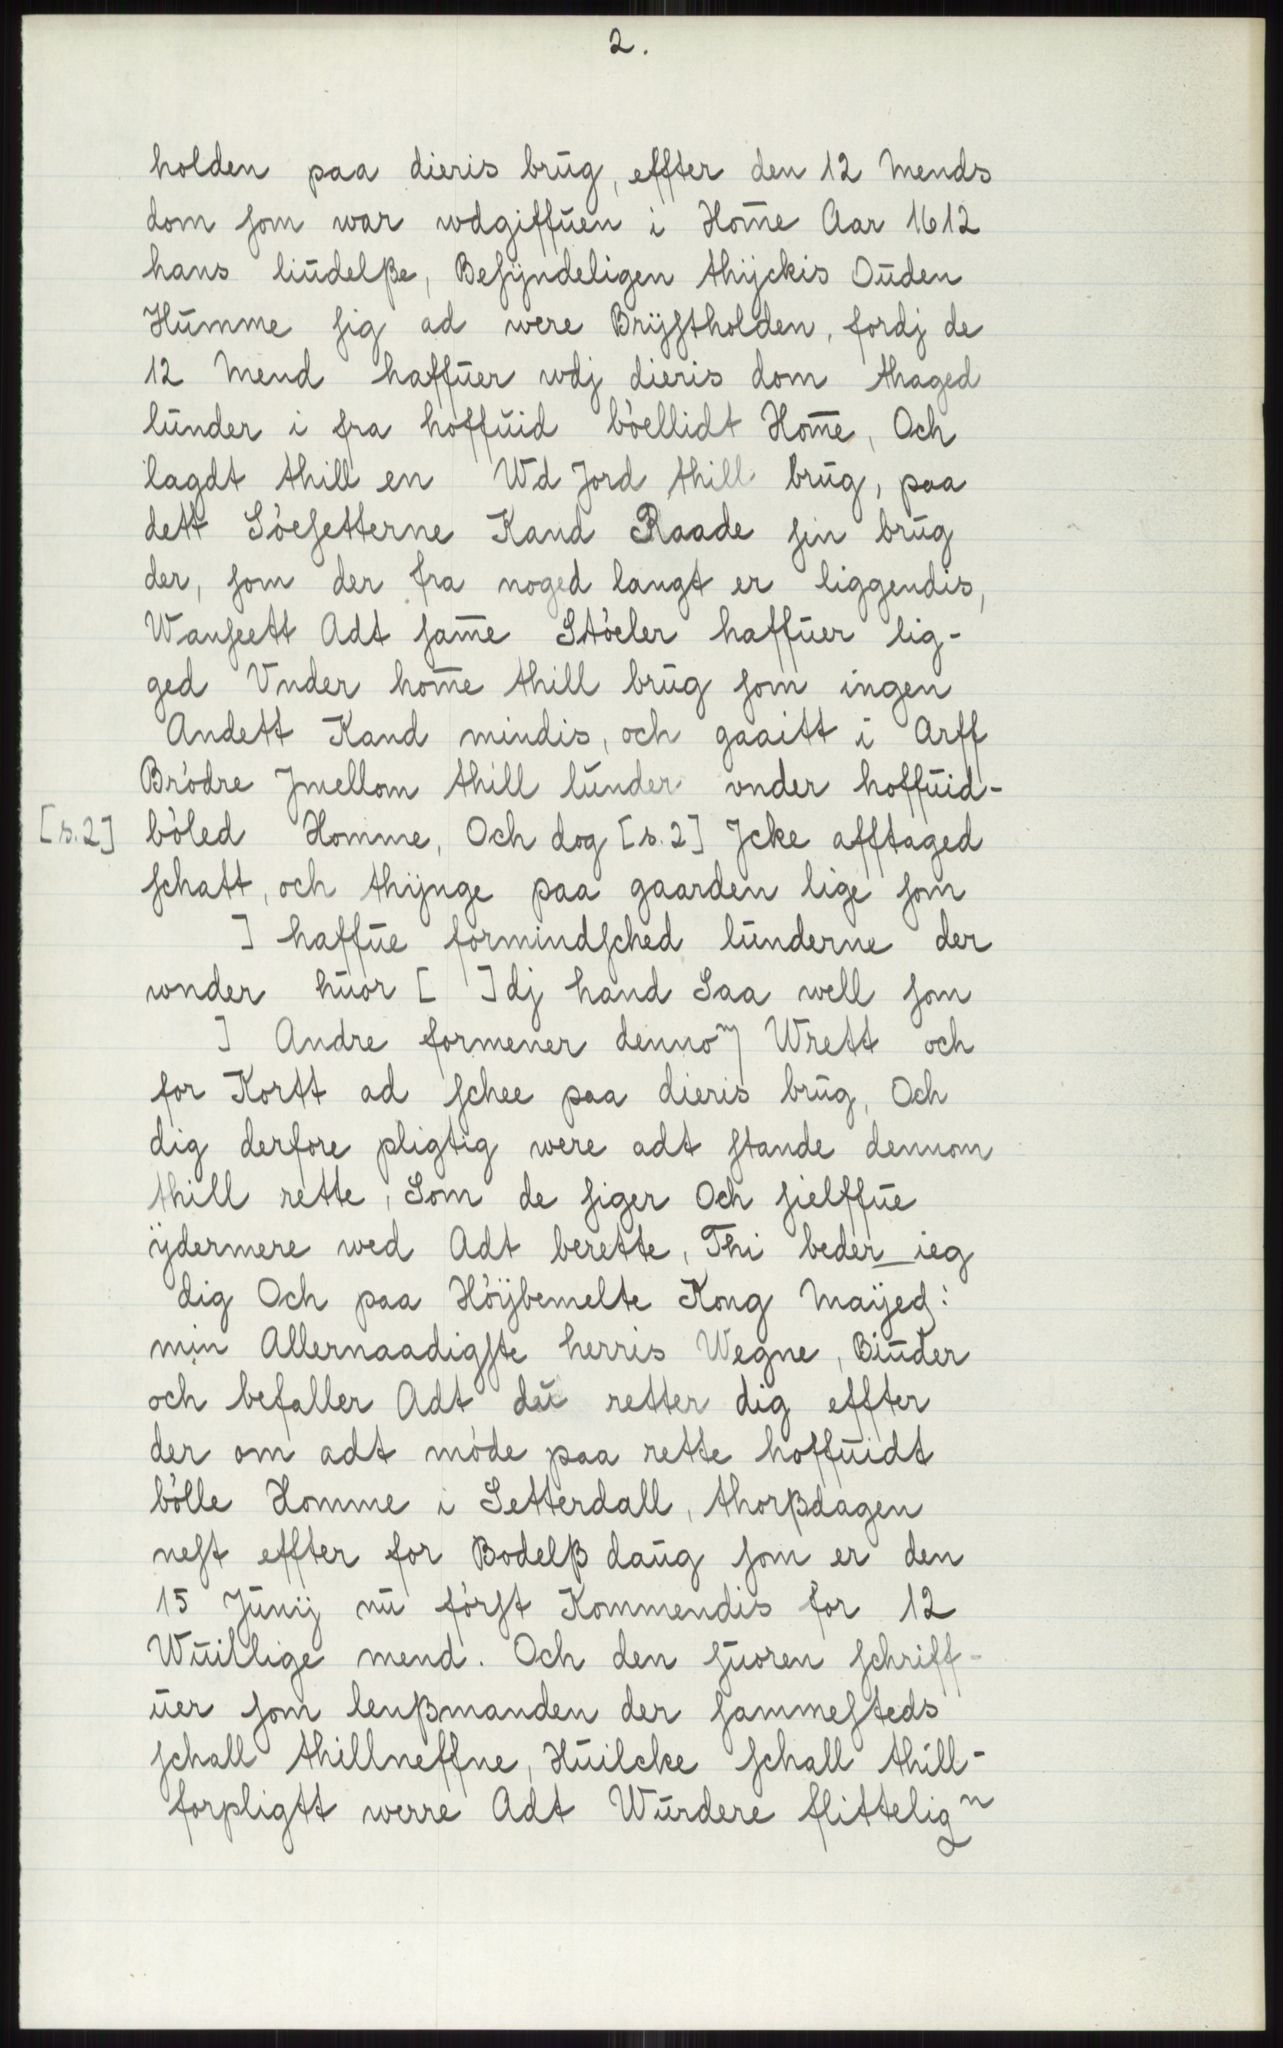 2.
holden paa dieris brug, effter den 12 Mends
dom som war wdgiffuen i Hom̅e Aar 1612
hans liudelße, Besÿndeligen thÿckis Ouden
Humme sig ad were Brÿstholden, fordj de
12 Mend haffuer wdj dieris dom thaged
lunder i fra hoffuid bóellidt Hom̅e, Och
lagdt thill en Wd Jord thill brug, paa
dett Sóesetterne Kand Raade sin brug
der, som der fra noged langt er liggendis,
Wanseett Adt sam̅e Stóeler haffuer lig-
ged Vnder hom̅e thill brug som ingen
Andett Kand mindis, och gaaitt i Arff
Bródre Jmellom thill lunder vnder hoffuid-
[s.2] bóled Homme, Och dog [s.2] Jcke afftaged
schatt, och thÿnge paa gaarden lige som
] haffue formindsched lunderne der
wnder huor [ ]dj hand Saa well som
] Andre formener dennoᷠ Wrett och
for Kortt ad schee paa dieris brug, Och
dig derfore pligtig were adt stande dennom
thill rette, Som de siger Och sielffue
ÿdermere wed Adt berette, Thi beder_ieg
dig Och paa Hóÿbemelte Kong Maÿed:
min Allernaadigste herris Wegne, Biuder
och befaller Adt du retter dig effter
der om adt móde paa rette hoffuidt
bólle Homme i Setterdall, thorßdagen
nest effter for Bodelß daug som er den
15 Junij nu fórst Kommendis for 12
Wuillige mend. Och den suoren schriff-
uer som lenßmanden der sammesteds
schall thillneffne, Huilcke schall thill-
forpligtt werre Adt Wurdere flitteligⁿ